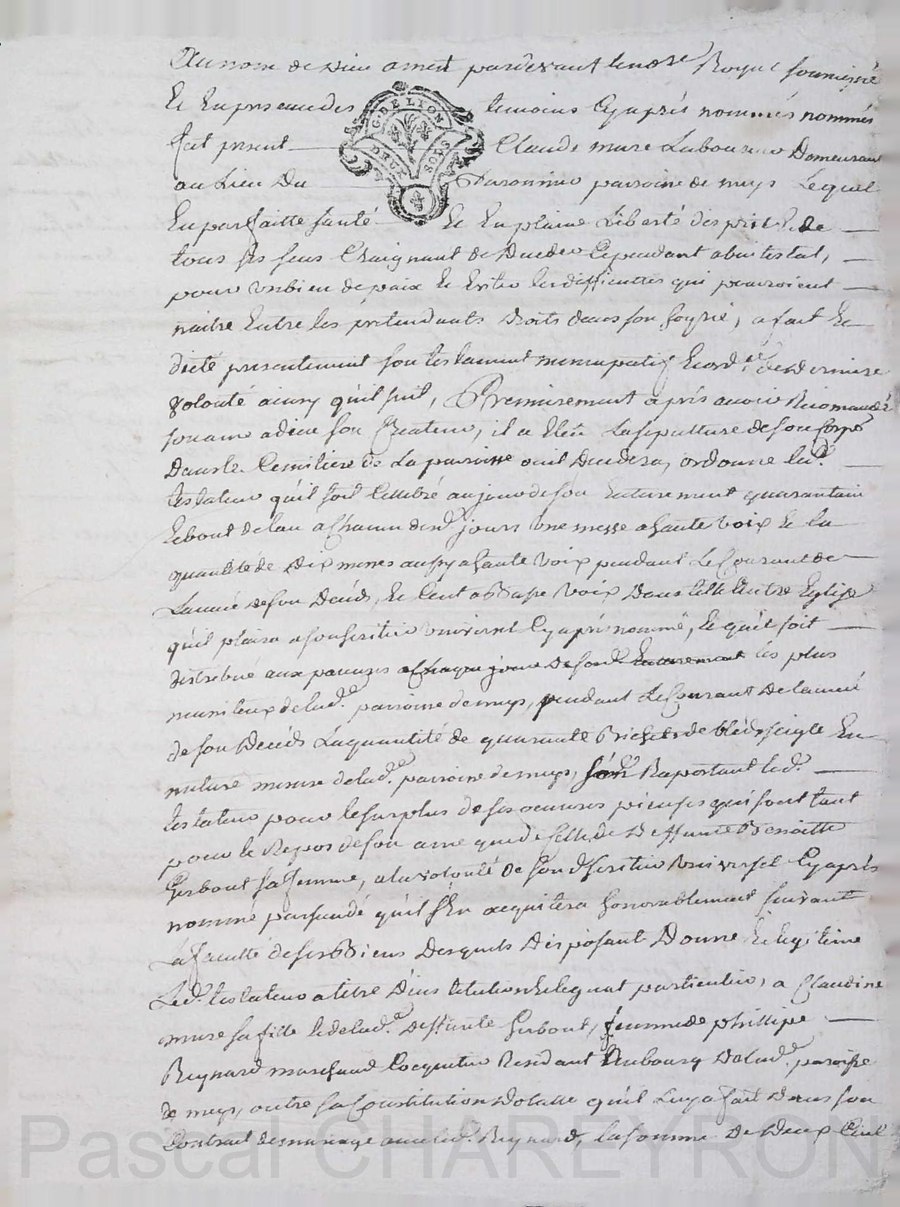 Au nom de Dieu amen pardevant le no.re Royal soussigné
Et En presence des temoins Cy après nommés nommés
fut present Claude mure Laboureur Demeurant
au Lieu Du paroisse de meys Lequel
En parfaitte santé Et En pleine Liberté desprit & de
tous ses sens Craignant de Deceder Cependant abintestat,
pour un bien de paix Et Eviter les difficultés qui pourroient
naitre Entre les pretendants Droits dans son hoyrie, a fait Et
dicté presentement son testament nuncupatif Et ord.re de Derniere
volonté ainsy qu'il suit, Premierement après avoir Recomandé
son ame a dieu son Createur, il a Eleu La sepulture de son Corps
Dans le Cemitiere de La paroisse ou il Decedera, ordonne led.
testateur qu'il soit Celebré au jour de son Enterrement quarantain
Et bout de lan a Chacun desd. jours une messe a haute voix Et la
quantité de Dix messes aussy a haute voix pendant Le Courant de
L'année de son Decés, Et Cent a Basse voix Dans telle Eglise
qu'il plaira a son heritier universel Cy après nommé, Et qu'il soit
distribué aux pauvres a Chaque jour de sond. Enterrement les plus
necessiteux de lad.e paroisse de meys, pendant Le Courant De l'année
de son Decés La quantité de quarante Bichets de bled seigle En
mesure de lad.e paroisse de meys, Raportant led.
testateur pour le surplus de ses oeuvres pieuses qui sont tant
pour le Repos de son ame que de Celle de Deffunte Benoitte
Gerbout sa femme, a la volonté de son heritier universel Cy après
nommé persuadé qu'il s'En acquitera honorablement suivant
la faculté de ses Biens Desquels Disposant Donne Et legue
Led. testateur a titre D'institution Et legat particulier, a Claudine
mure sa fille Et de lad.e Deffunte Gerbout, femme de phillipe
Reynard marchand Coquetier Residant au bourg De lad.e paroisse
de meys, outre sa Constitution Dotalle qu'il Luy a fait Dans son
Contrat de mariage avec led. Reynard, la somme De Deux Cent
Pascal CHAREYRON
G. DE LYON
DEUX SOLS